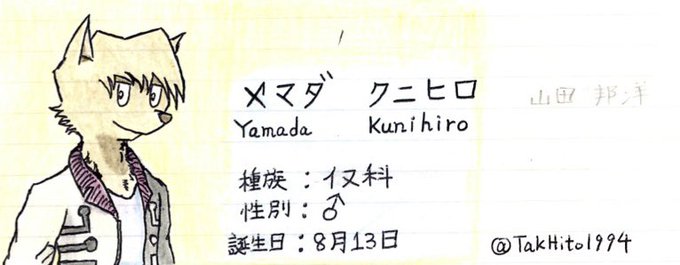 ヤマダ クニヒロ 山田 邦洋
Yamada Kunihiro
種族：イヌ科
性別：♂
誕生日：8月13日
@TakHito1994